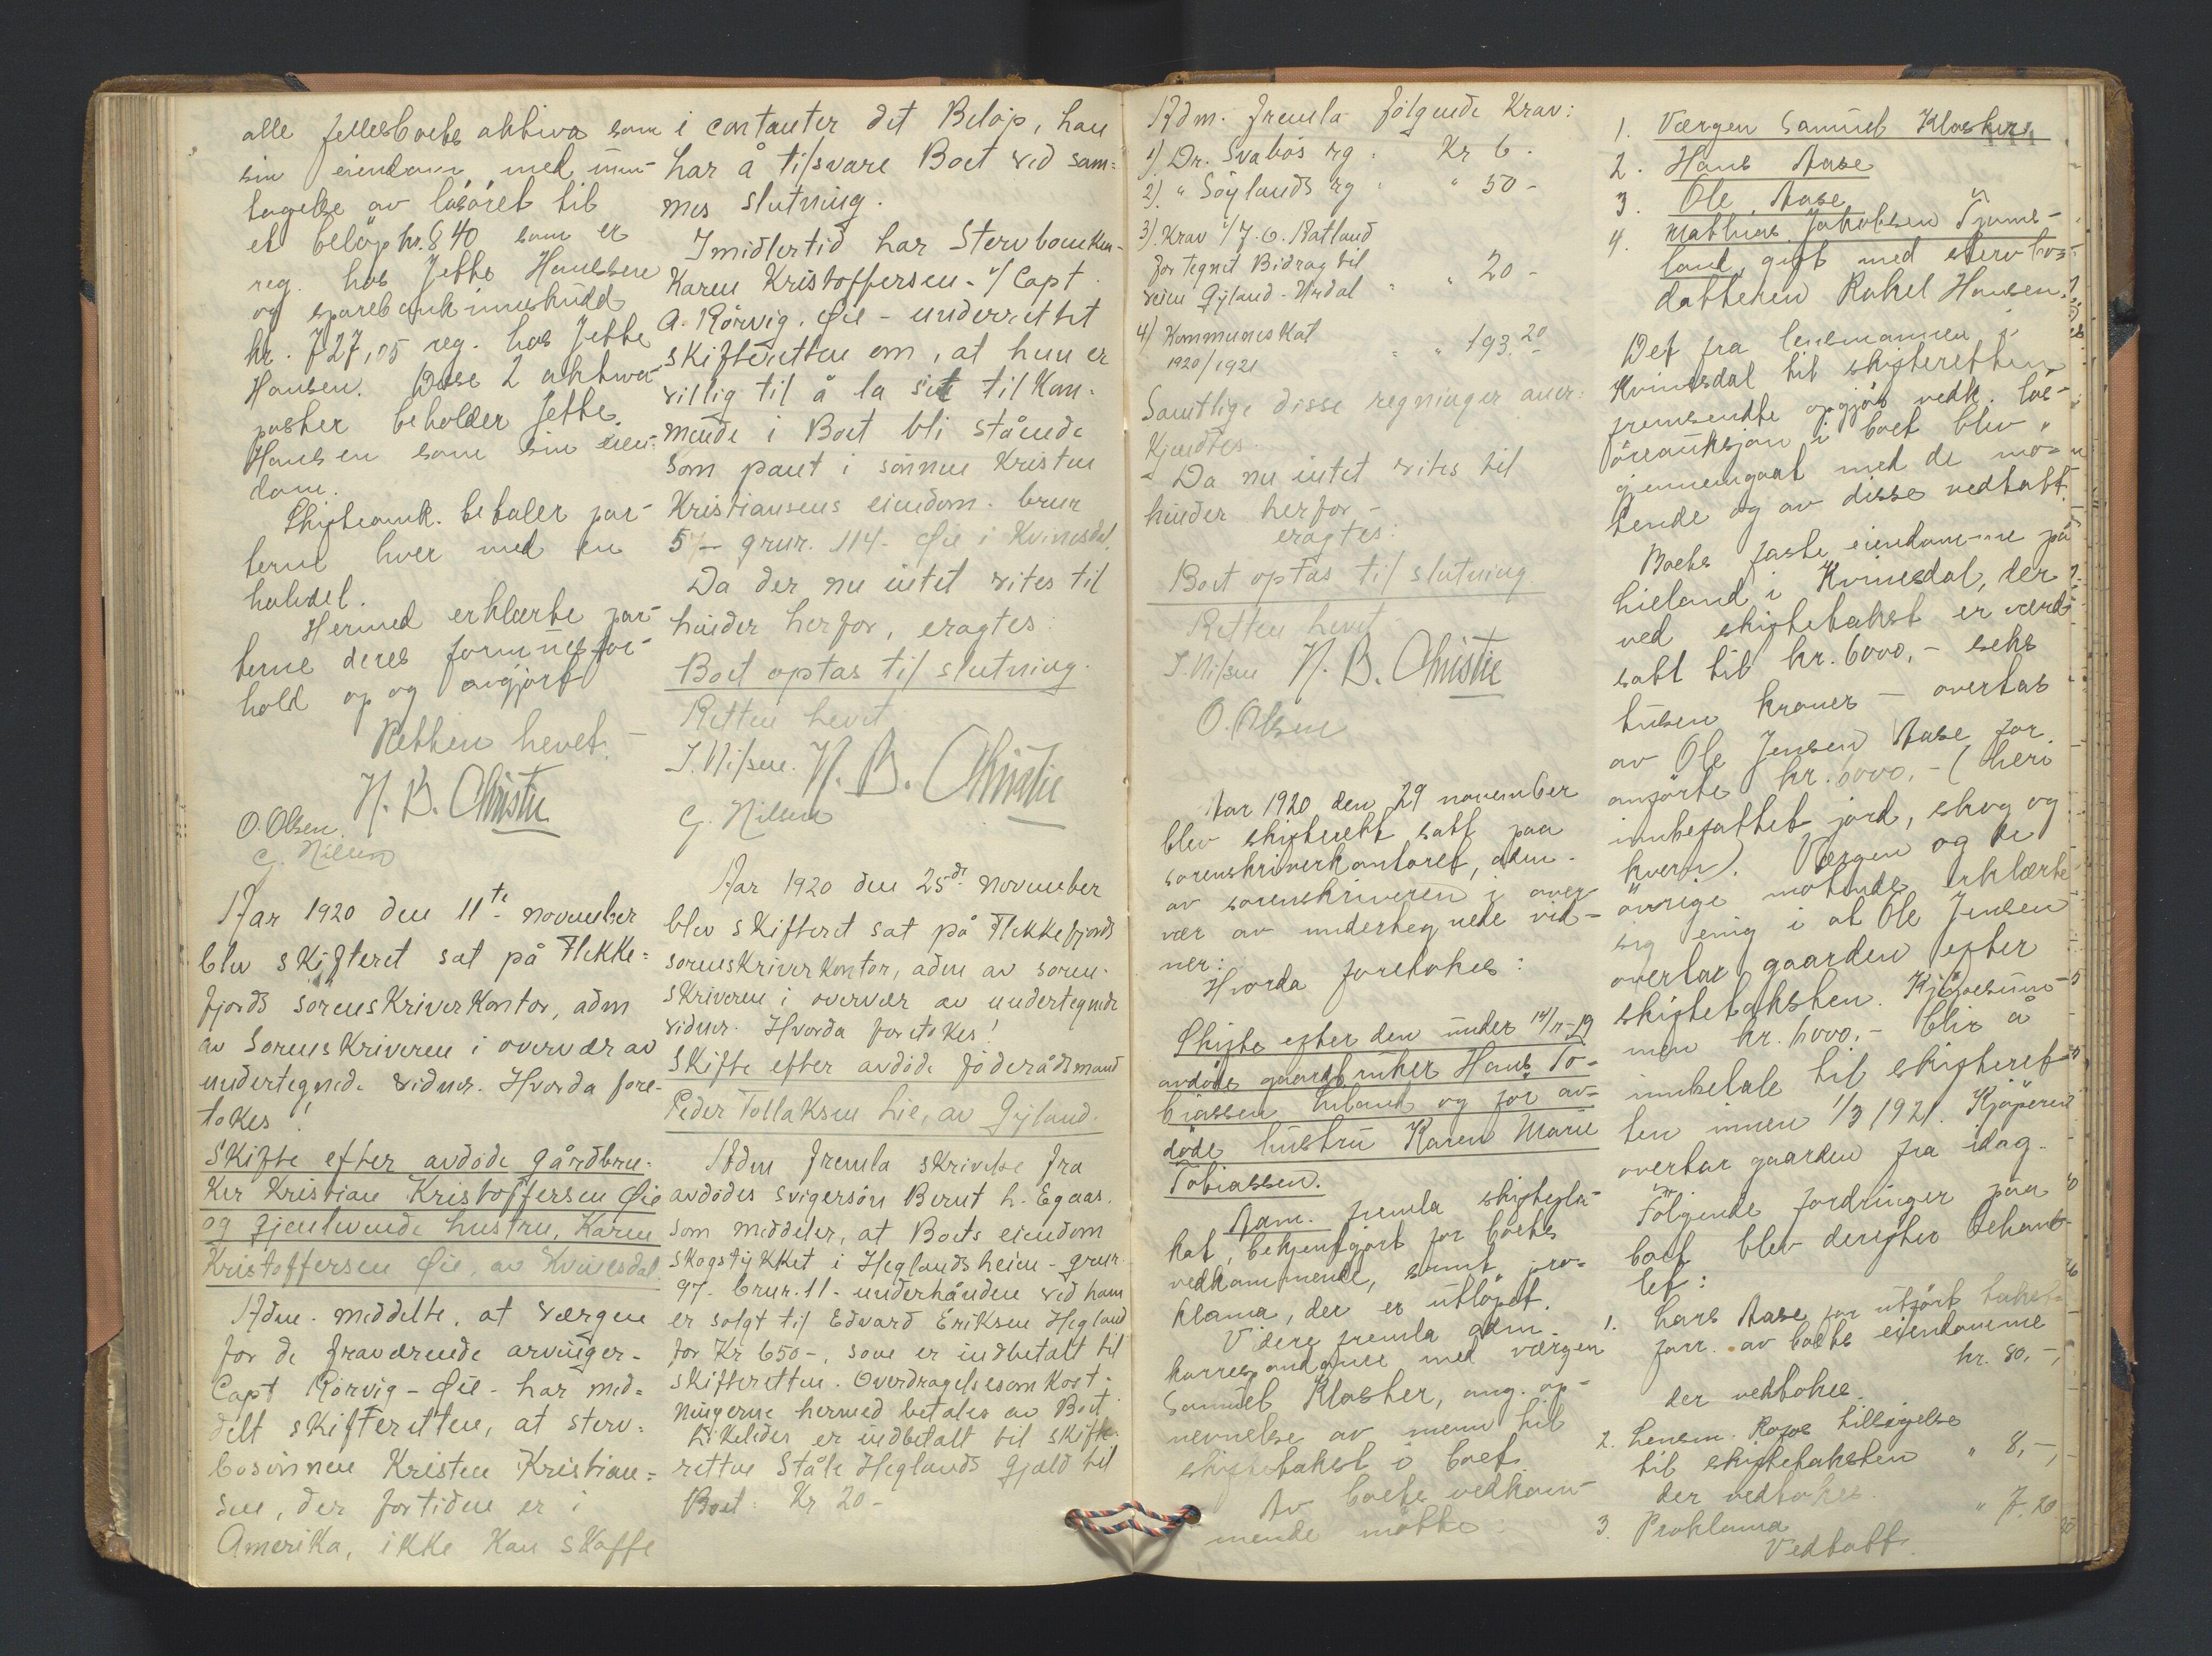 alle fellesboets aktiva som
sin eiendom med unn-
tagelse av lösöret til
et belöp kr. 840 som er
reg. hos Jette Hanssen
og sparebankinnskudd
kr. 727,05 reg. hos Jette
Hansen. Disse 2 aktiva-
poster beholder Jette
Hansen som sin eien-
dom.
Skifteomk. betaler par-
terne hver med en
halvdel.
Hermed erklærte par-
terne deres formuesfor-
hold op og avgjort
Retten hevet. -
N. B. Christie
O. Olsen.
G. Nilsen
Aar 1920 den 11te november
blev skifteret sat på Flekke-
fjords sorenskriverkontor, adm
av Sorenskriveren i overvær av
undertegnede vidner. Hvorda fore-
tokes!
Skifte efter avdöde gårdbru-
ker Kristian Kristoffersen Öie
og gjenlevende hustru, Karen
Kristoffersen Öie, av Kvinesdal.
Adm. meddelte, at værgen
for de fraværende arvinger -
Capt Rörvig - Öie - har med-
delt skifteretten, at sterv-
bosönnen Kristen Kristian-
sen, der fortiden er i
Amerika, ikke kan skaffe
i contanter det Belöp, han
har å tilsvare Boet ved sam-
mes slutning.
Imidlertid har Stervboenken-
Karen Kristoffersen - v/ Capt.
A. Rörvig. Öie - underrettet
skifteretten om, at hun er
villig til å la sit tilkom-
mende i Boet bli stående
som pant i sönnen Kristen
Kristiansens eiendom. brnr
5 - grnr. 114 - Öie i Kvinesdal.
Da der nu intet vites til
hinder herfor, eragtes:
Boet optas til slutning.
Retten hevet
J. Nilsen. N. B. Christie
G. Nilsen
Aar 1920 den 25de november
blev skifteret sat på Flekkefjords
sorenskriverkontor, adm av soren-
skriveren i overvær av undertegnede
vidner. Hvorda foretokes!
Skifte efter avdöde föderådsmand
Peder Tollaksen Lie, av Gyland.
Adm fremla skrivelse fra
avdödes svigersön Bernt L. Egaas.
som meddeler, at Boets eiendom
skogstykket i Heglandsheien - grnr.
97. brnr. 11 - underhånden ved ham
er solgt til Edvard Eriksen Hegland
for Kr 650 -, som er indbetalt til
skifteretten. Overdragelsesomkost-
ningerne hermed betales av Boet
Likeledes er indbetalt til skifte-
retten Ståle Heglands gjæld til
Boet: Kr 20 -
Adm. fremla følgende Krav:
1). Dr. Svabös rg. Kr 6 -
2). " Söylands rg " " 50 -
3). Krav v/ J. O. Ratland
for tegnet Bidrag til
veien Gyland - Urdal " " 20 -
4) Kommuneskat
1920/1921 " " 193.20
Samtlige disse regninger aner-
kjendtes.
Da nu intet vites til
hinder herfor -
eragtes:
Boet optas til slutning
Retten hevet
J. Nilsen N. B. Christie
O. Olsen
Aar 1920 den 29 november
blev skifterett satt paa
sorenskriverkontoret, adm.
av sorenskriveren i over-
vær av undertegnede vid-
ner:
Hvorda foretokes:
Skifte efter den under 14/11-19
avdöde gaardbruker Hans To-
biassen Hieland og för av-
döde hustru Karen Marie
Tobiassen.
Adm. fremla skiftepla-
kat, bekjentgjort for boets
vedkommende, samt pro-
klama, der er utlöpet.
Videre fremla adm.
korrespondanse med værgen
Samuel Kloster, ang. op-
nevnelse av menn til
skiftetakst i boet.
Av boets vedkom-
mende mötte:
1. Værgen Samuel Kloster
2. Hans Aase
3. Ole Aase
4. Mathias Jakobsen Tjoms-
land, gift med stervbos-
datteren Rakel Hansen.
Det fra lensmannen i
Kvinesdal til skifteretten
fremsendte opgjör vedk. lös-
öreauksjon i boet blev
gjennemgaat med de mö-
tende og av disse vedtatt.
Boets faste eiendomme på
Hieland i Kvinesdal, der
ved skiftetakst er verd-
satt til kr. 6000,- seks
tusen kroner - overtas
av Ole Jensen Aase for
anförte kr. 6000,- (heri
innbefattet jord, skog og
kvern). Værgen og de
övrige mötende erklærte
sig enig i at Ole Jensen
overtar gaarden efter
skiftetaksten. Kjöpesum-
men kr. 6000,- blir å
innbetale til skifteret-
ten innen 1/3 1921. Kjöperen
overtar gaarden fra idag.
Fölgende fordringer paa
boet blev derefter behand-
let:
1. Lars Aase for utfört takst-
forr. av boets eiendomme
kr. 80,-,
der vedtokes.
2. Lensm. tilsigelse
til skiftetaksten " 8,-,
der vedtokes.
3. Proklama " 7.20
Vedtatt.